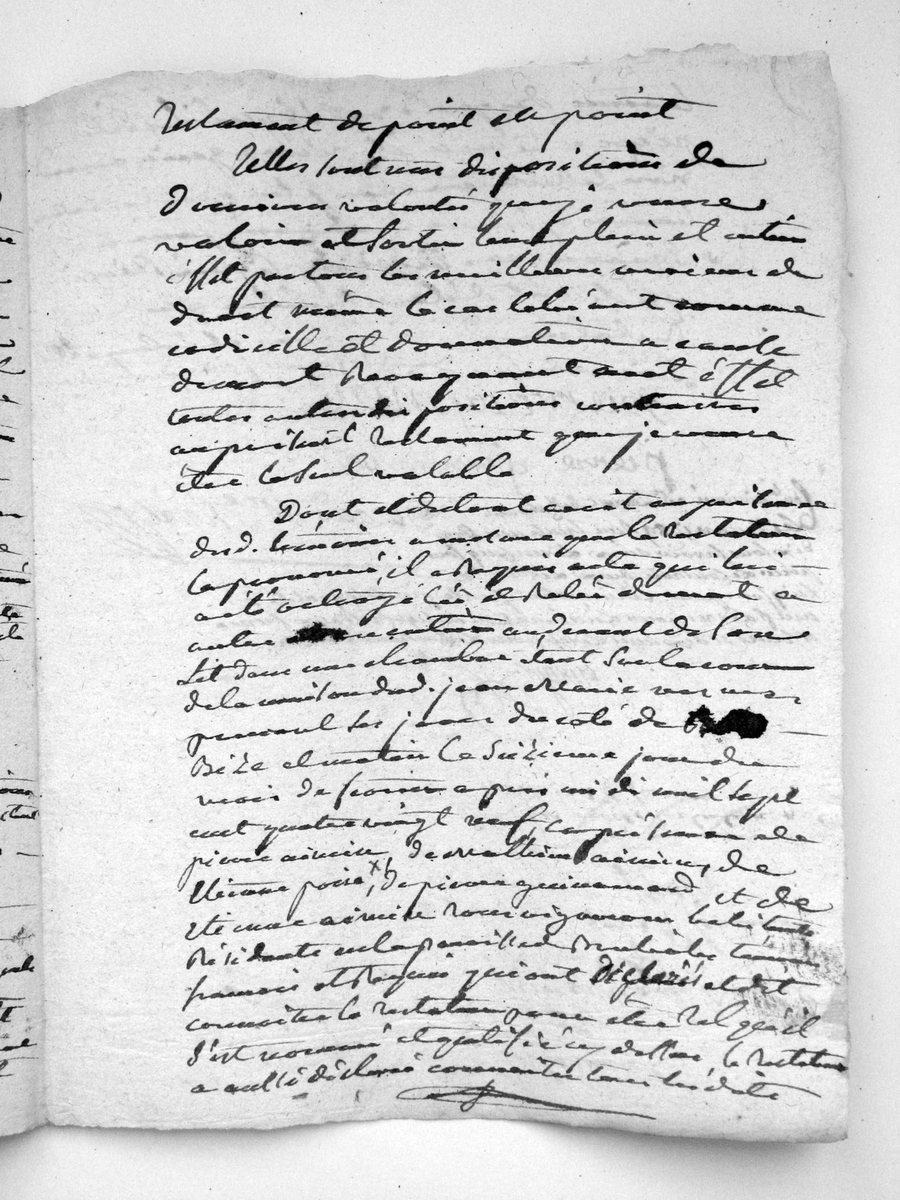 testament de point en point
Telles sont mes dispositions de
dernieres volontés que je veux
valoir et sortir leur plein et entier
éffet par tous les meilleurs moiens de
droit même le cas échéant comme
codicille et donnation a cause
de mort Revoquant sans éffet
toutes autres dispositions contraires
au présent testament que je veux
être le seul valable
Dont et du tout acte en présence
desd. témoins a mesure que le testateur
la prononcé, il a Requis acte que lui
ai été octroyé lû et Relû devant
autre au devant de son
Lit dans une chambre étant sur le cours
de la maison dud. jean Marie
prenant ses jours du coté de
Bize et matin le seizieme jour du
mois de fevrier apres midi mil sept
cent quatre vingt neuf, en présence de
pierre aimine, de Mathieu aimine, de
Etienne poire x, de pierre guinamand et de
Etienne aimine tous vignerons habitants
Résidents en la paroisse de témoins
priés et Requis qui ont déclaré et dit
connoitre le testateur pour être tel qu'il
s'est nommé et qualifié cy dessus, le testateur
a aussi déclaré connoitre tous lesdits